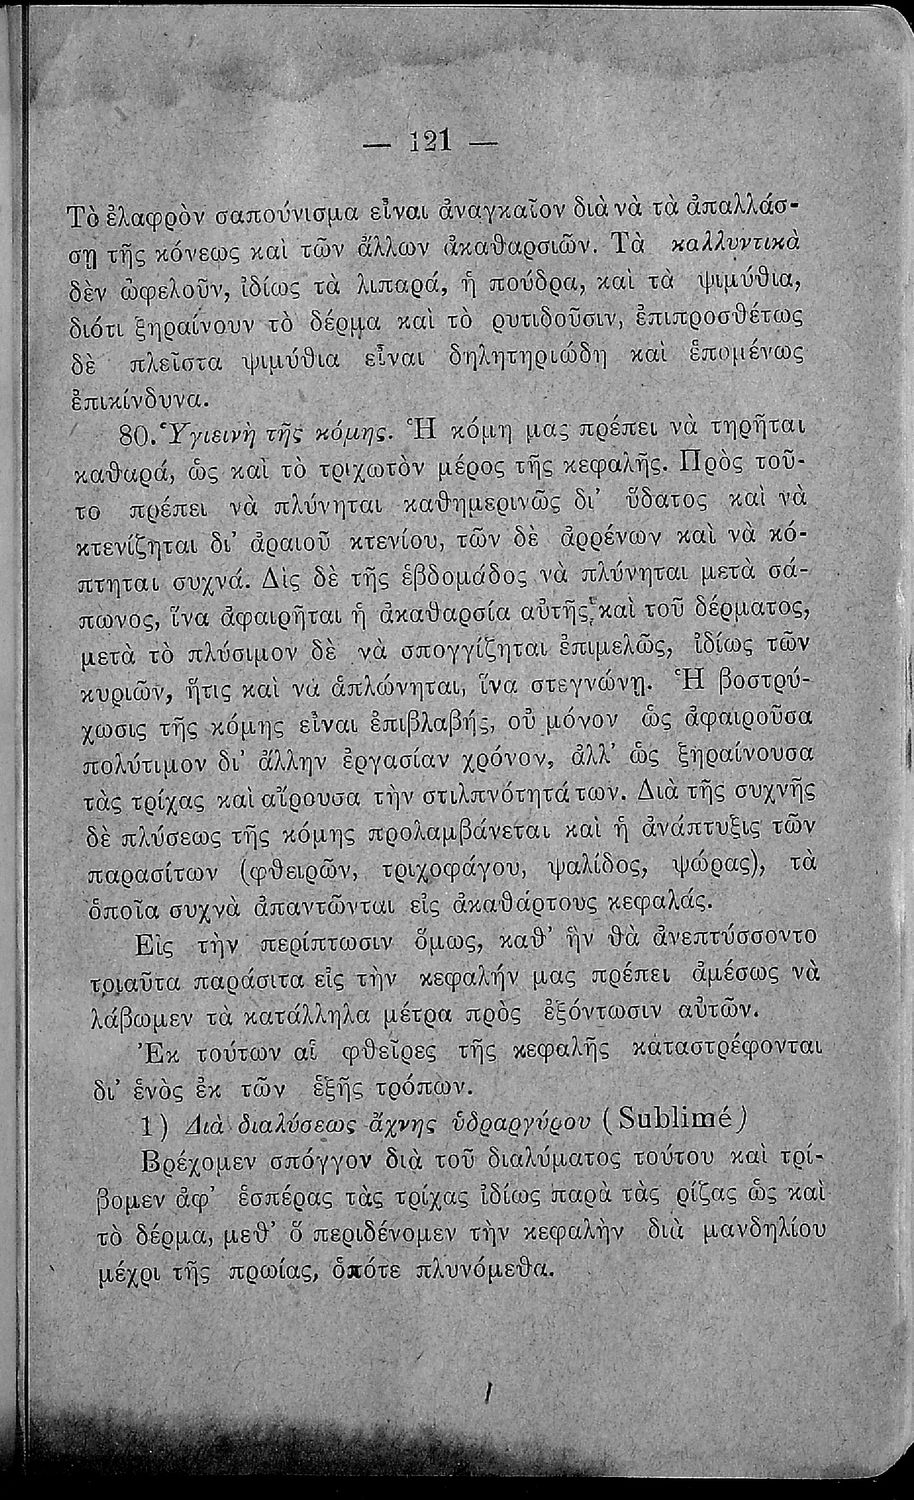 — 121 —
Τὸ ἐλαφρὸν σαπούνισμα εἶναι ἀναγκαῖον διὰ νὰ τὰ ἀπαλλάσ-
σῃ τῆς κόνεως καὶ τῶν ἄλλων ἀκαθαρσιῶν. Τὰ καλλυντικὰ
δὲν ὠφελοῦν, ἰδίως τὰ λιπαρά, ἡ πούδρα, καὶ τὰ ψιμύθια,
διότι ξηραίνουν τὸ δέρμα καὶ τὸ ρυτιδοῦσιν, ἐπιπροσθέτως
δὲ πλεῖστα ψιμύθια εἶναι δηλητηριώδη καὶ ἑπομένως
ἐπικίνδυνα.
80. Ὑγιεινὴ τῆς κόμης. Ἡ κόμη μας πρέπει νὰ τηρῆται
καθαρά, ὡς καὶ τὸ τριχωτὸν μέρος τῆς κεφαλῆς. Πρὸς τοῦ-
το πρέπει νὰ πλύνηται καθημερινῶς δι' ὕδατος καὶ νὰ
κτενίζηται δι' ἀραιοῦ κτενίου, τῶν δὲ ἀρρένων καὶ νὰ κό-
πτηται συχνά. Δὶς δὲ τῆς ἑβδομάδος νὰ πλύνηται μετὰ σά-
πωνος, ἵνα ἀφαιρῆται ἡ ἀκαθαρσία αὐτῆς καὶ τοῦ δέρματος,
μετὰ τὸ πλύσιμον δὲ νὰ σπογγίζηται ἐπιμελῶς, ἰδίως τῶν
κυριῶν, ἥτις καὶ νὰ ἁπλώνηται, ἵνα στεγνώνῃ. Ἡ βοστρύ-
χωσις τῆς κόμης εἶναι ἐπιβλαβής, οὐ μόνον ὡς ἀφαιροῦσα
πολύτιμον δι' ἄλλην ἐργασίαν χρόνον, ἀλλ' ὡς ξηραίνουσα
τὰς τρίχας καὶ αἴρουσα τὴν στιλπνότητά των. Διὰ τῆς συχνῆς
δὲ πλύσεως τῆς κόμης προλαμβάνεται καὶ ἡ ἀνάπτυξις τῶν
παρασίτων (φθειρῶν, τριχοφάγου, ψαλίδος, ψώρας), τὰ
ὁποῖα συχνὰ ἀπαντῶνται εἰς ἀκαθάρτους κεφαλάς.
Εἰς τὴν περίπτωσιν ὅμως, καθ' ἣν θὰ ἀνεπτύσσοντο
τοιαῦτα παράσιτα εἰς τὴν κεφαλήν μας πρέπει ἀμέσως νὰ
λάβωμεν τὰ κατάλληλα μέτρα πρὸς ἐξόντωσιν αὐτῶν.
Ἐκ τούτων αἱ φθεῖρες τῆς κεφαλῆς καταστρέφονται
δι' ἑνὸς ἐκ τῶν ἑξῆς τρόπων.
1) Διὰ διαλύσεως ἄχνης ὑδραργύρου (Sublimé)
Βρέχομεν σπόγγον διὰ τοῦ διαλύματος τούτου καὶ τρί-
βομεν ἀφ' ἑσπέρας τὰς τρίχας ἰδίως παρὰ τὰς ρίζας ὡς καὶ
τὸ δέρμα, μεθ' ὃ περιδένομεν τὴν κεφαλὴν διὰ μανδηλίου
μέχρι τῆς πρωίας, ὁπότε πλυνόμεθα.